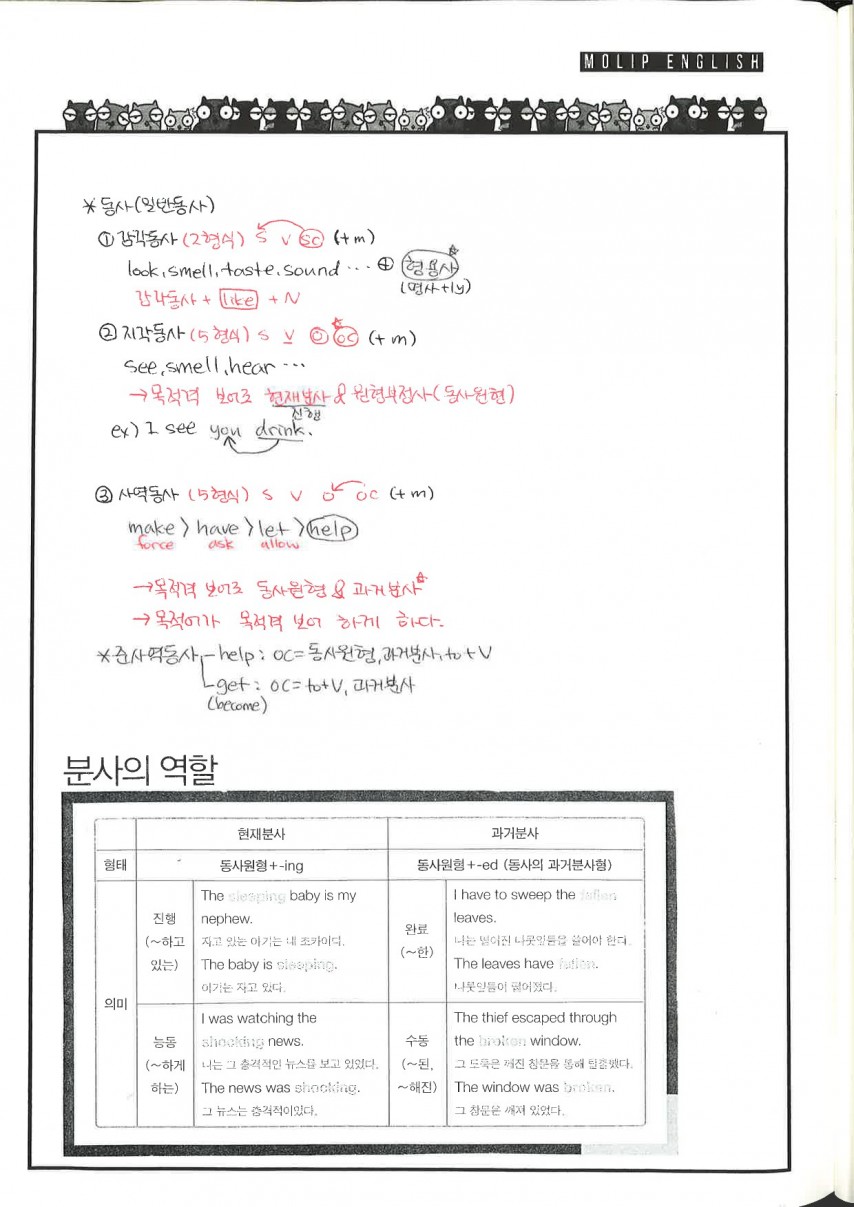 MOLIP ENGLISH
* 동사(일반동사)
① 감각동사 (2형식) S V SC (+m)
look, smell, taste, sound ··· ⊕ 형용사
(명사+ly)
감각동사 + like + N
② 지각동사 (5형식) S V O OC (+m)
see, smell, hear ···
→목적격 보어로 현재분사 & 원형부정사(동사원형)
진행
ex) I see you drink.
③ 사역동사 (5형식) S V O OC (+m)
make > have > let > help
force ask allow
→목적격 보어로 동사원형 & 과거분사
→목적어가 목적격 보어 하게 하다.
*준사역동사 - help : OC = 동사원형, 과거분사, to+V
get : OC = to+V, 과거분사
(become)
분사의 역할
현재분사 과거분사
형태 동사원형+-ing 동사원형+-ed (동사의 과거분사형)
의미
진행
(~하고
있는)
The sleeping baby is my
nephew.
자고 있는 아기는 내 조카이다.
The baby is sleeping.
아기는 자고 있다.
완료
(~한)
I have to sweep the fallen
leaves.
나는 떨어진 나뭇잎들을 쓸어야 한다.
The leaves have fallen.
나뭇잎들이 떨어졌다.
능동
(~하게
하는)
I was watching the
shocking news.
나는 그 충격적인 뉴스를 보고 있었다.
The news was shocking.
그 뉴스는 충격적이었다.
수동
(~된,
~해진)
The thief escaped through
the broken window.
그 도둑은 깨진 창문을 통해 탈출했다.
The window was broken.
그 창문은 깨져 있었다.